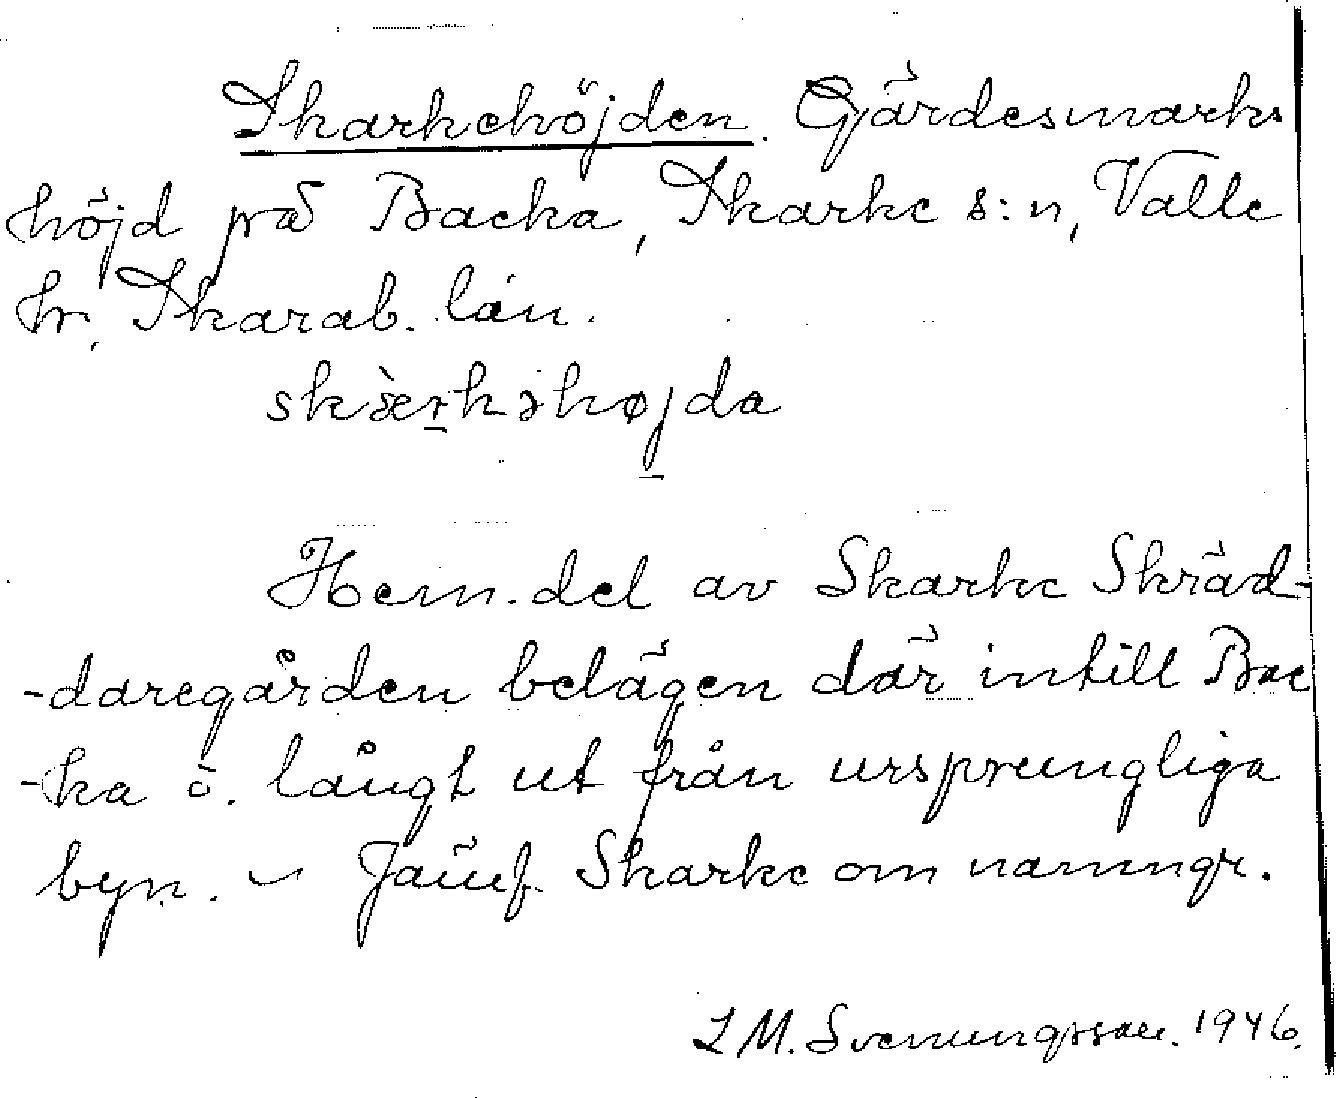 Skarkehöjden. Gärdesmarks
höjd på Backa, Skarke s:n, Valle
hr, Skarab. län.
skæ̀r̠kəhøj̠da
Hem. del av Skarke Skräd-
-daregården belägen där intill Bac
-ka o. långt ut från ursprungliga
byn. – Jämf. Skarke om namngr.
L M. Svenungsson. 1946.